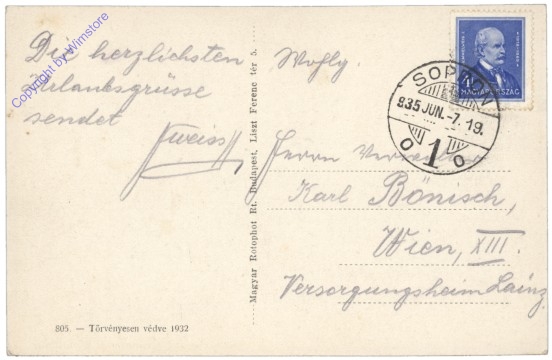 Die herzlichsten
Urlaubsgrüsse
sendet
Copyright by Wimstore
805. — Törvényesen védve 1932
Magyar Rotophot Rt. Budapest, Liszt Ferenc tér 5.
MAGYARORSZÁG
SOPRON
935 JUN. -7. 19.
1
Herrn
Karl Bönisch,
Wien, XIII.
Versorgungsheim Lainz